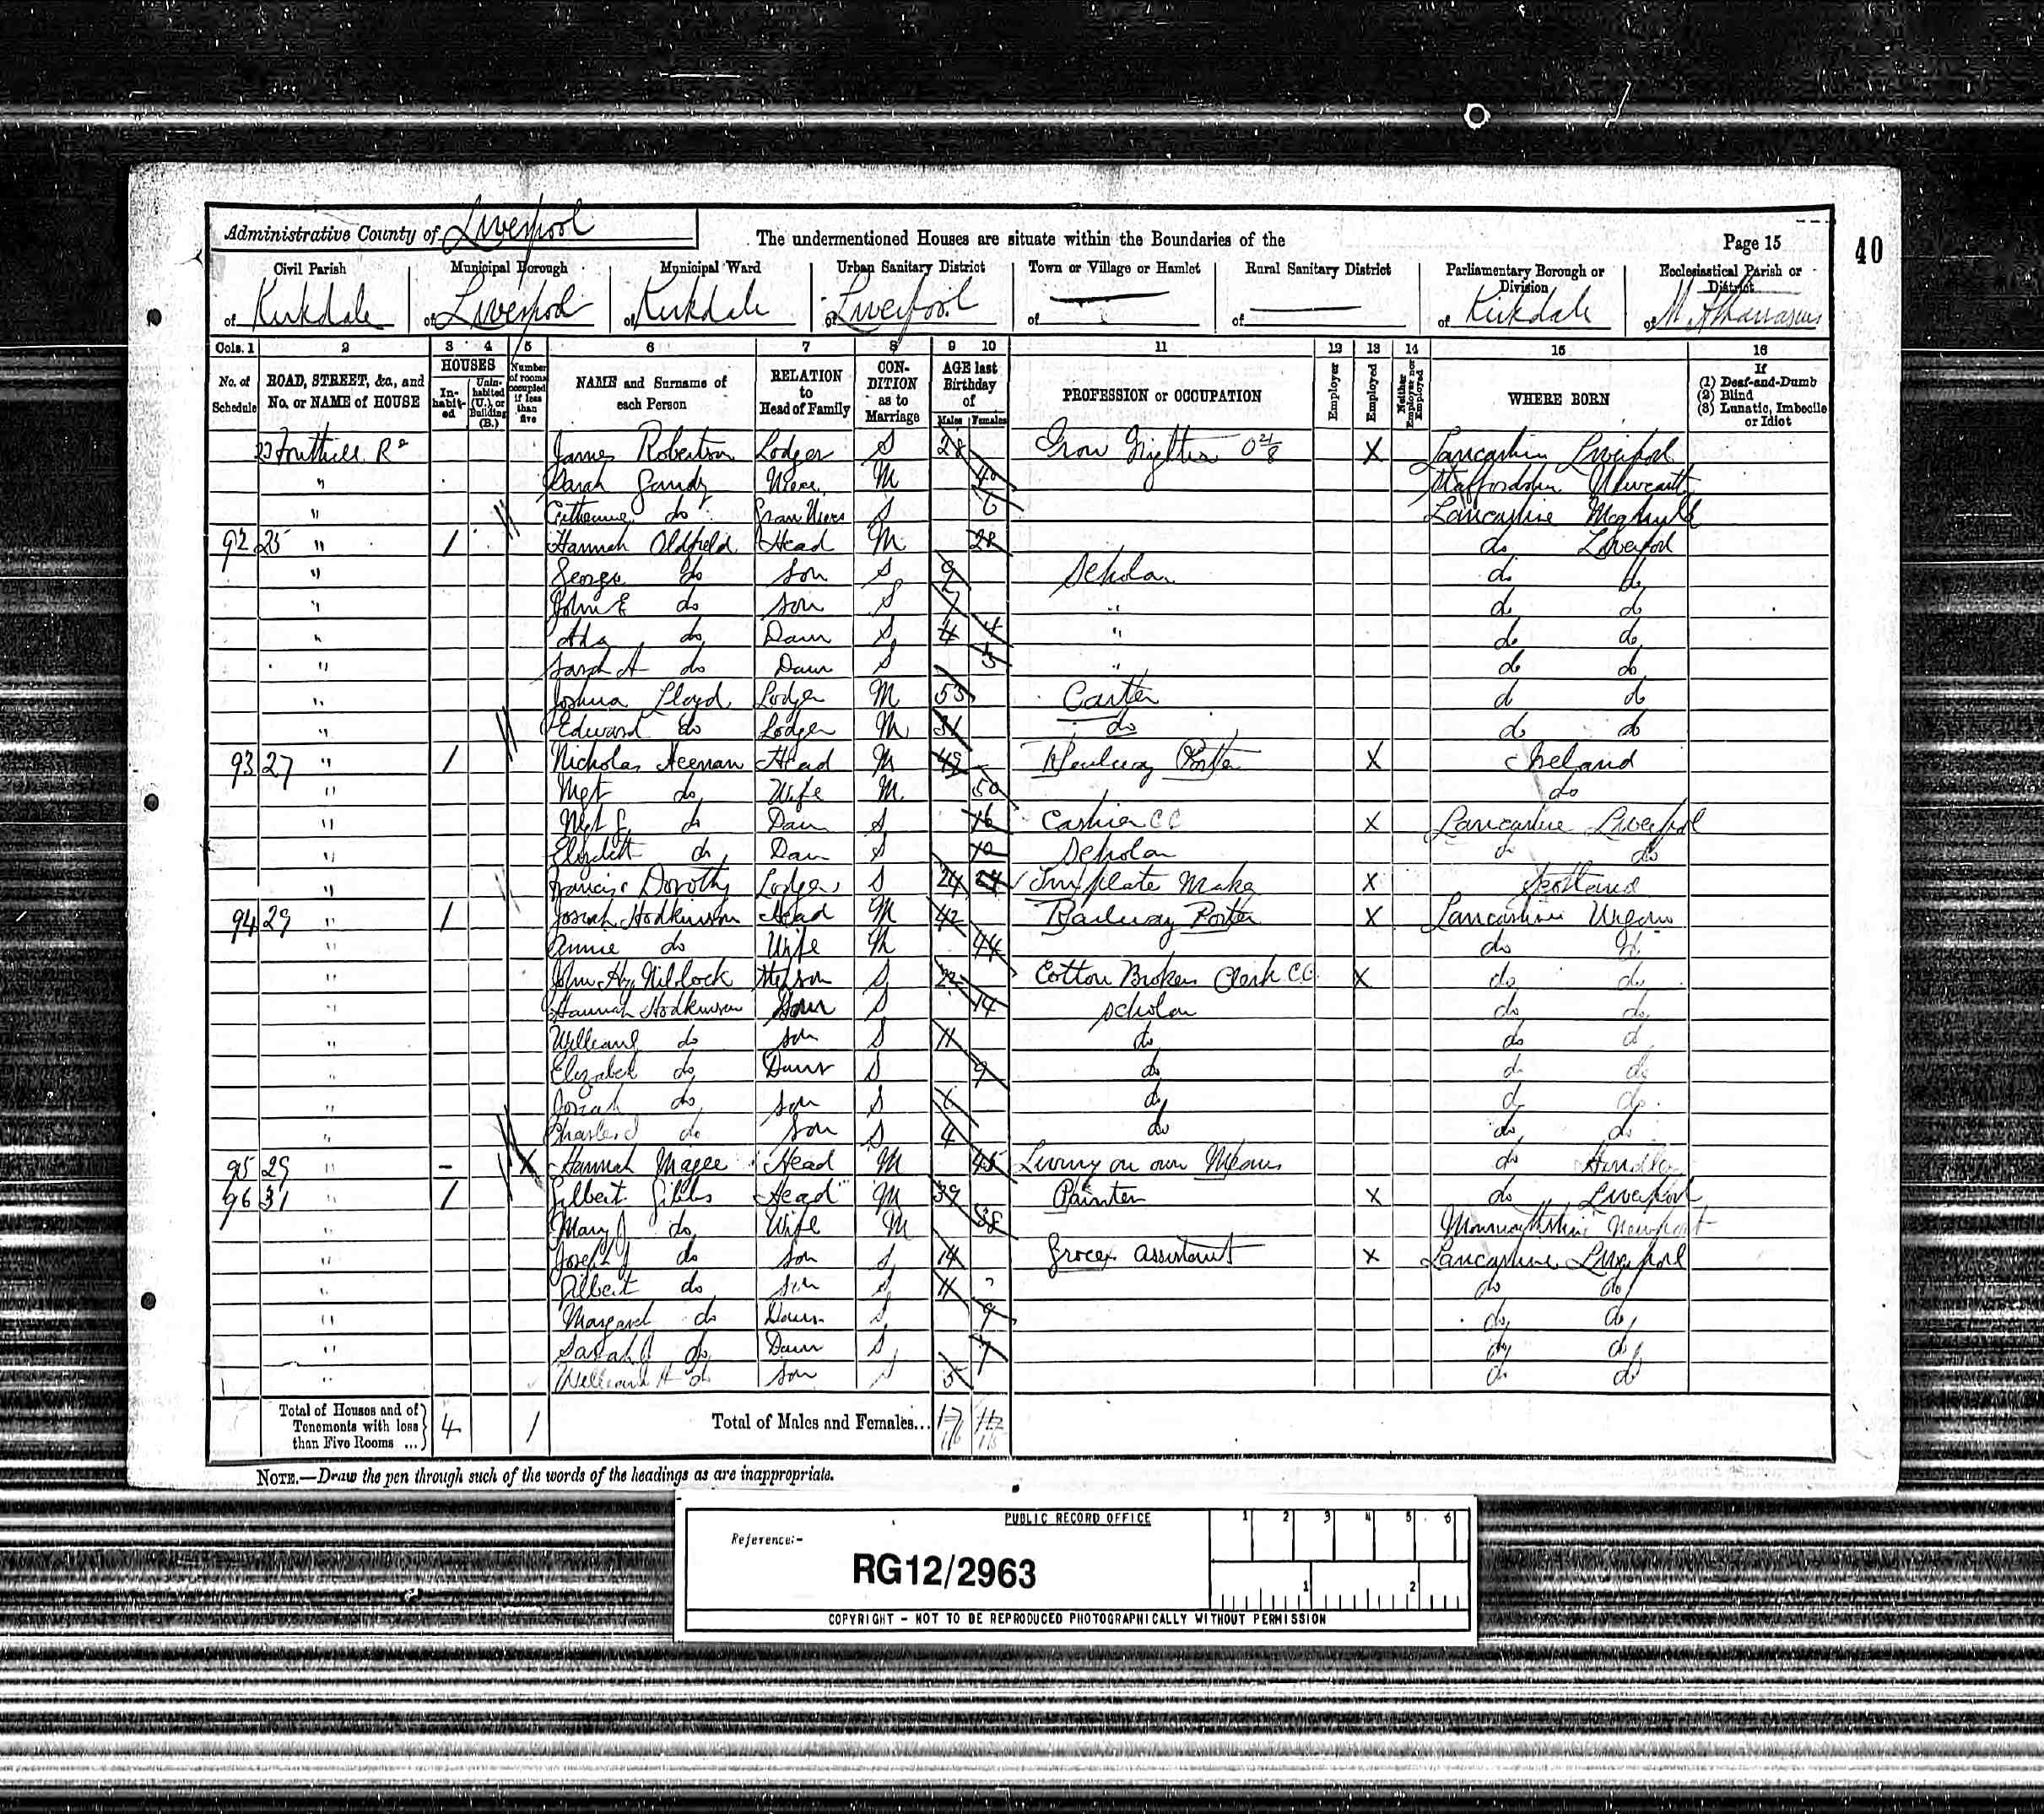 Administrative County of Liverpool
The undermentioned Houses are situate within the Boundaries of the
Page 15
40
Civil Parish of Kirkdale
Municipal Borough of Liverpool
Municipal Ward of Kirkdale
Urban Sanitary District of Liverpool
Town or Village or Hamlet of
Rural Sanitary District of
Parliamentary Borough or Division of Kirkdale
Ecclesiastical Parish or District of St Athanasius
Cols. 1 2 3 4 5 6 7 8 9 10 11 12 13 14 15 16
No. of Schedule
ROAD, STREET, &c., and No. or NAME of HOUSE
HOUSES
In-habit-ed
Unin-habited (U.), or Building (B.)
Number of rooms occupied if less than five
NAME and Surname of each Person
RELATION to Head of Family
CON-DITION as to Marriage
AGE last Birthday of
Males Females
PROFESSION or OCCUPATION
Employer
Employed
Neither Employer nor Employed
WHERE BORN
If (1) Deaf-and-Dumb (2) Blind (3) Lunatic, Imbecile or Idiot
23 Fonthill Rd James Robertson Lodger S 28 Iron X Lancashire Liverpool
" Sarah Gandy Niece M 40 Staffordshire Newcastle
" Catherine do Gran Niece S 6 Lancashire
92 25 " 1 Hannah Oldfield Head M 28 do Liverpool
" George do Son S 9 Scholar do do
" John E do Son S 7 " do do
" Ada do Daur S 4 4 " do do
" Sarah A do Daur S 3 " do do
" Joshua Lloyd Lodger M 53 Carter do do
" Edward do Lodger M 31 do do do
93 27 " 1 Nicholas Heenan Head M 49 Railway Porter X Ireland
" Mgt do Wife M 50 do
" Mgt J do Daur S 16 Cashier CC X Lancashire Liverpool
" Elizabeth do Daur S 10 Scholar do do
" Francis Dorothy Lodger S 24 24 Tin plate Maker X Scotland
94 29 " 1 Josiah Hodkinson Head M 42 Railway Porter X Lancashire Wigan
" Annie do Wife M 44 do do
" John Hy Niblock Stepson S 22 Cotton Brokers Clerk CC X do do
" Hannah Hodkinson Daur S 14 Scholar do do
" William do Son S 11 do do do
" Elizabeth do Daur S 9 do do do
" Josiah do Son S 6 do do do
" Charles do Son S 4 do do do
95 29 " - X Hannah Magee Head M 45 Living on own Means do Hindley
96 31 " 1 Gilbert Gibbs Head M 39 Painter X do Liverpool
" Mary J do Wife M 38 Monmouthshire Newport
" Joseph J do Son S 14 Grocer assistant X Lancashire Liverpool
" Albert do Son S 11 do do
" Margaret do Daur S 9 do do
" Sarah J do Daur S 7 do do
" William H do Son S 5 do do
Total of Houses and of Tenements with less than Five Rooms ... 4 1
Total of Males and Females... 17 16
NOTE.—Draw the pen through such of the words of the headings as are inappropriate.
PUBLIC RECORD OFFICE
1 2 3 4 5 6
Reference:-
RG12/2963
1 2
COPYRIGHT - NOT TO BE REPRODUCED PHOTOGRAPHICALLY WITHOUT PERMISSION